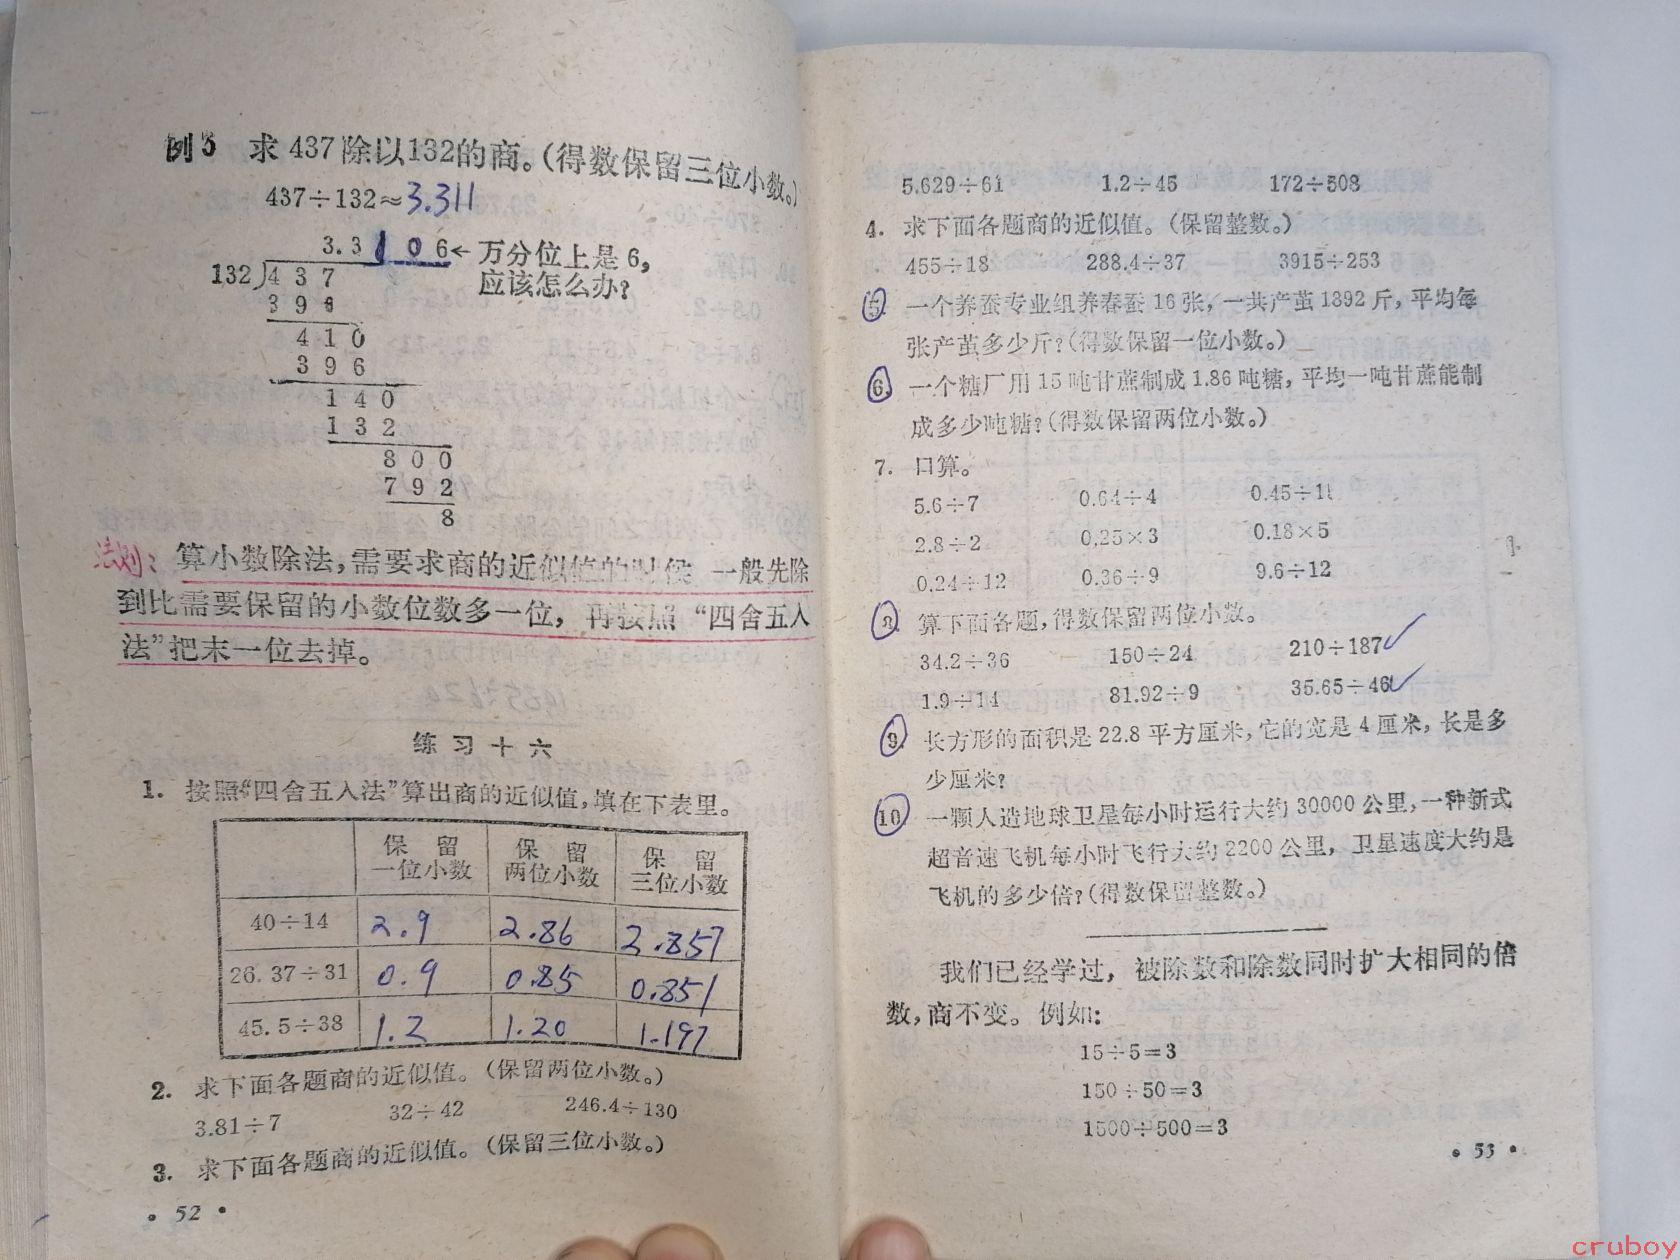 例5 求437除以132的商。(得数保留三位小数。)
437÷132≈3.311
3.3106←万分位上是6,
132)437 应该怎么办?
396
410
396
140
132
800
792
8
法则: 算小数除法,需要求商的近似值的时候 一般先除
到比需要保留的小数位数多一位,再按照“四舍五入
法”把末一位去掉。
练习十六
1. 按照“四舍五入法”算出商的近似值,填在下表里。
保留一位小数 保留两位小数 保留三位小数
40÷14 2.9 2.86 2.857
26.37÷31 0.9 0.85 0.851
45.5÷38 1.2 1.20 1.197
2. 求下面各题商的近似值。(保留两位小数。)
3.81÷7 32÷42 246.4÷130
3. 求下面各题商的近似值。(保留三位小数。)
• 52 •
5.629÷61 1.2÷45 172÷508
4. 求下面各题商的近似值。(保留整数。)
455÷18 288.4÷37 3915÷253
5. 一个养蚕专业组养春蚕16张,一共产茧1892斤,平均每
张产茧多少斤?(得数保留一位小数。)
6. 一个糖厂用15吨甘蔗制成1.86吨糖,平均一吨甘蔗能制
成多少吨糖?(得数保留两位小数。)
7. 口算。
5.6÷7 0.64÷4 0.45÷1
2.8÷2 0.25×3 0.18×5
0.24÷12 0.36÷9 9.6÷12
8. 算下面各题,得数保留两位小数。
34.2÷36 150÷24 210÷187
1.9÷14 81.92÷9 35.65÷46
9. 长方形的面积是22.8平方厘米,它的宽是4厘米,长是多
少厘米?
10. 一颗人造地球卫星每小时运行大约30000公里,一种新式
超音速飞机每小时飞行大约2200公里,卫星速度大约是
飞机的多少倍?(得数保留整数。)
我们已经学过,被除数和除数同时扩大相同的倍
数,商不变。例如:
15÷5=3
150÷50=3
1500÷500=3
• 53 •
cruboy